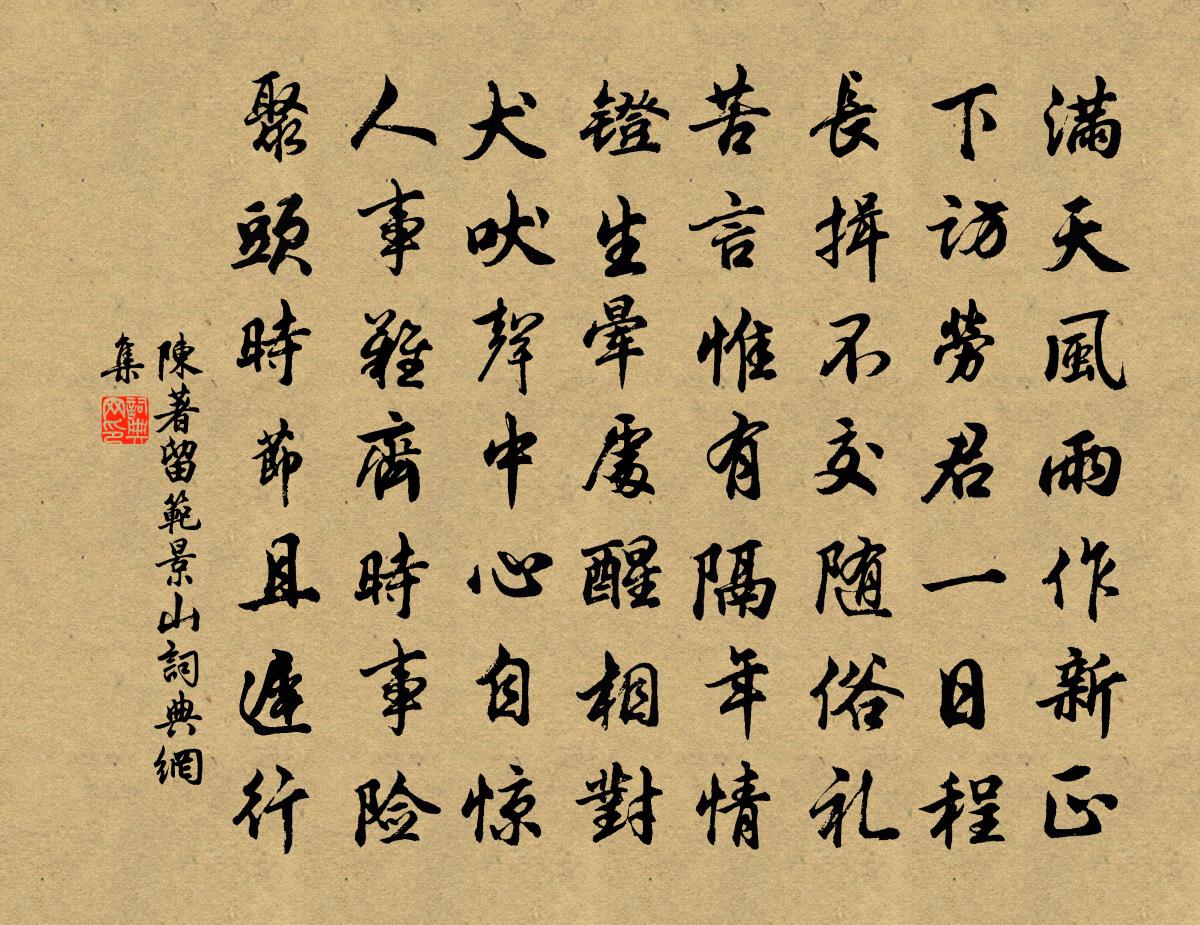 満天風雨作新正
下訪勞君一日程
長揖不交随俗礼
苦言惟有隔年情
鐙生暈處醒相對
犬吠聲中心自惊
人事難齊時事险
聚頭時節且遲行
陳著留範景山詞典網
集
詞典
网印